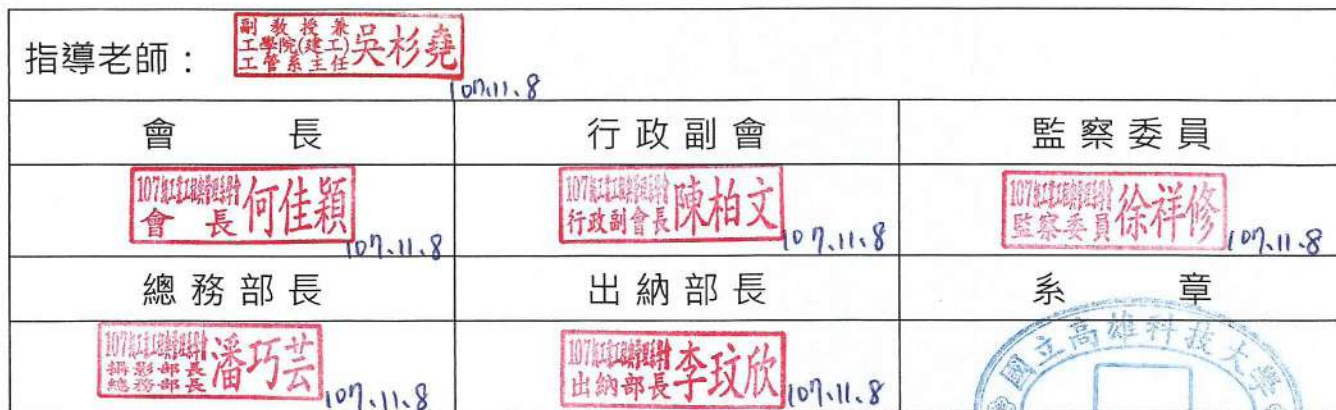 指導老師：
副教授兼
工學院(建工)
工管系主任 吳杉堯
107.11.8
會 長 行政副會 監察委員
107級工業工程與管理系學會
會 長 何佳穎
107.11.8
107級工業工程與管理系學會
行政副會長 陳柏文
107.11.8
107級工業工程與管理系學會
監察委員 徐祥修
107.11.8
總務部長 出納部長 系 章
107級工業工程與管理系學會
攝影部長
總務部長 潘巧芸
107.11.8
107級工業工程與管理系學會
出納部長 李玟欣
107.11.8
國立高雄科技大學